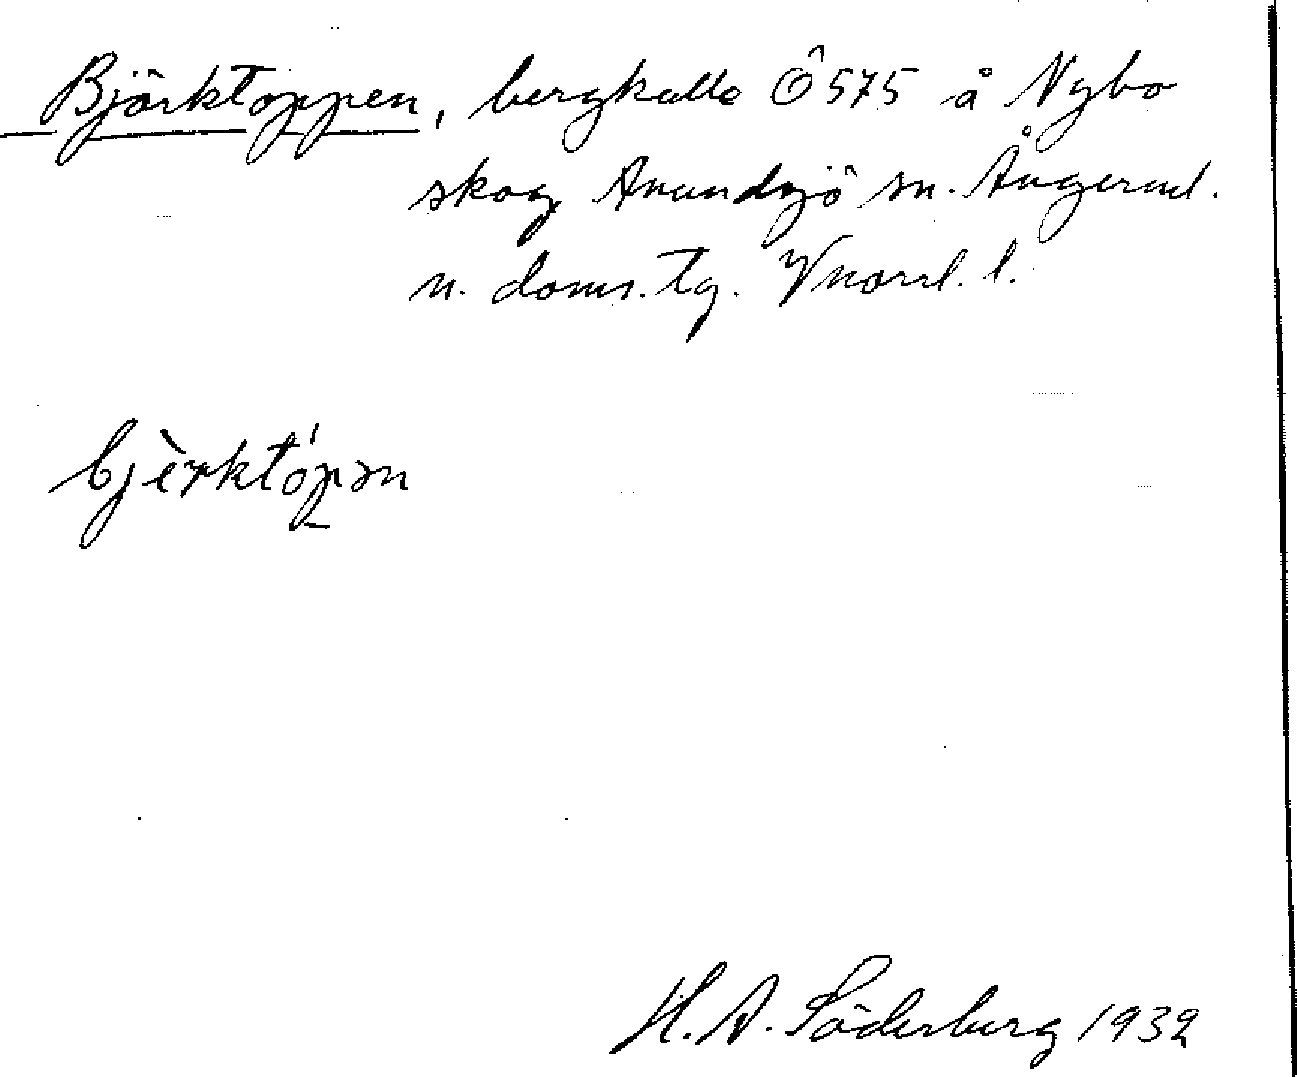 Björktoppen, bergkalle Ö 575 å Nybo
skog Anundsjö sn. Ångerml.
n. doms. tg. Vnorrl. l.
bjèrktópən
H. A. Söderberg 1932